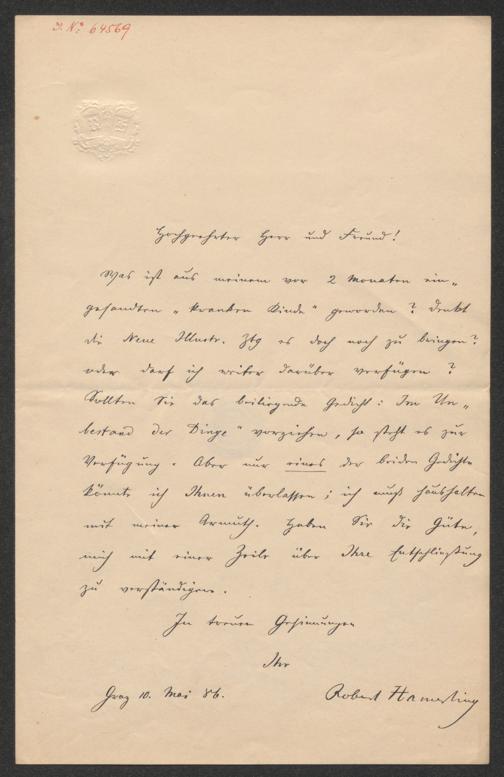 I. N: 64569
Hochgeehrter Herr und Freund!
Was ist aus meinem vor 2 Monaten ein„
gesandten „kranken Kinde“ geworden? Denkt
die Neue Illustr. Ztg es doch noch zu bringen?
oder darf ich weiter darüber verfügen?
Sollten Sie das beiliegende Gedicht: Im Un„
bestand der Dinge“ vorziehen, so steht es zur
Verfügung. Aber nur eines der beiden Gedichte
könnte ich Ihnen überlassen; ich muß haushalten
mit meiner Armuth. Haben Sie die Güte,
mich mit einer Zeile über Ihre Entschließung
zu verständigen.
In treuen Gesinnungen
Ihr
Graz 10. Mai 86.
Robert Hamerling